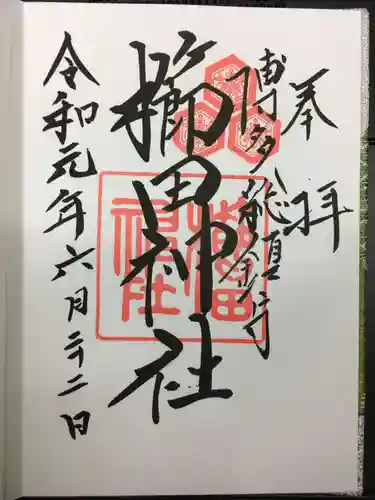 奉拝
博多総鎮守
櫛田神社
櫛田神社
令和元年六月二十二日